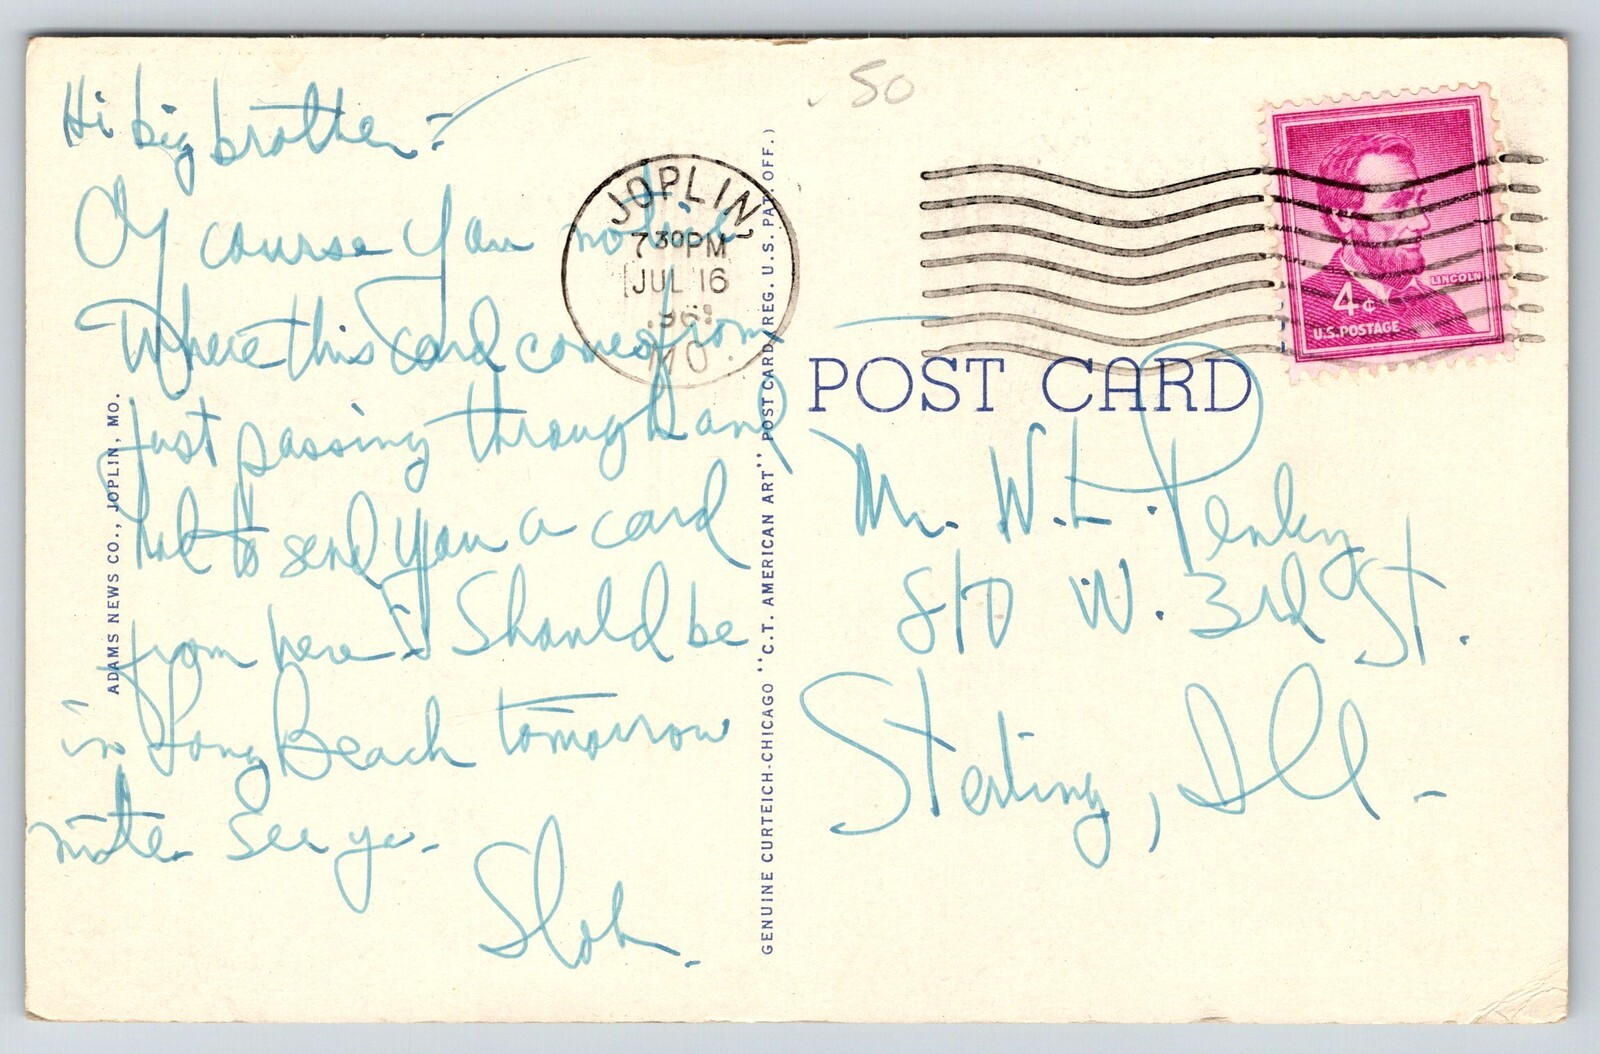 Hi big brother -
Of course you notice
Where this card comes from -
Just passing through and
had to send you a card
from here. I Should be
in Long Beach tomorrow
nite. See ya.
Slok.
ADAMS NEWS CO., JOPLIN, MO.
GENUINE CURTEICH-CHICAGO "C.T. AMERICAN ART" POST CARD (REG. U.S. PAT. OFF.)
.50
JOPLIN
7 30 PM
JUL 16
MO.
LINCOLN
4¢
U.S. POSTAGE
POST CARD
Mr. W.L. Penley
810 W. 3rd St.
Sterling, Ill -